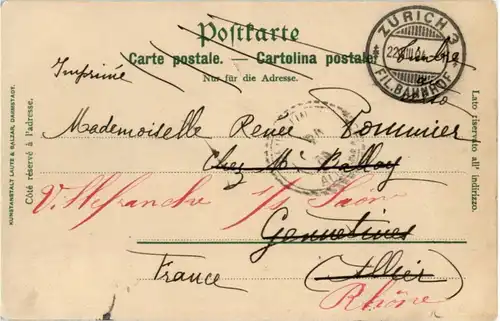 Postkarte
Carte postale. — Cartolina postale.
Nur für die Adresse.
ZÜRICH 3
FIL. BAHNHOF
Imprimé
Mademoiselle Renée Pommier
Chez M. Balloy
Villefranche s/ Saône
Gennetines
France (Allier)
Rhône
Côté réservé à l'adresse.
KUNSTANSTALT LAUTZ & BALZAR, DARMSTADT.
Lato riservato all' indirizzo.